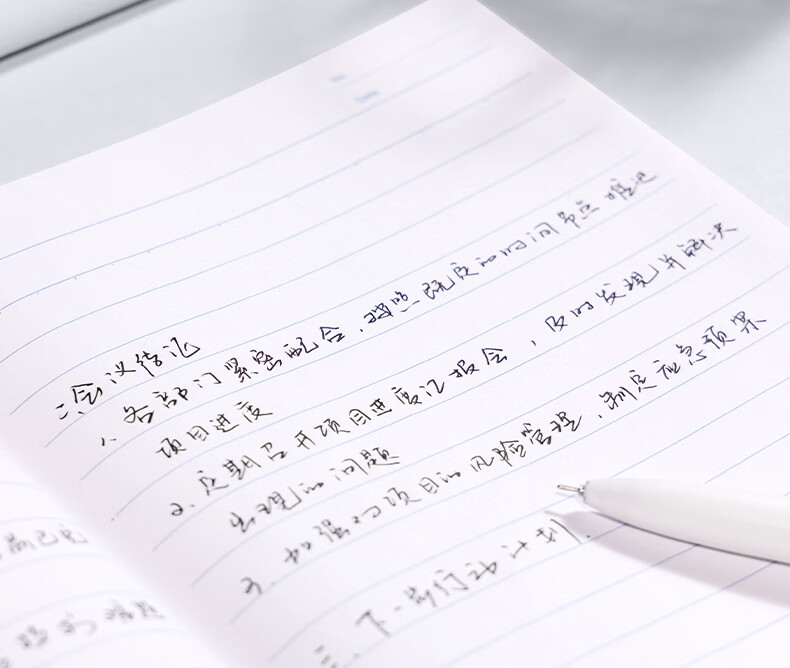 No:
Date:
二会议传记
1、各部门紧密配合，按照既定的时间节点推进
项目进度
2、定期召开项目进度汇报会，及时发现并解决
出现的问题
3、加强对项目的风险管理，制定应急预案
三、下一步行动计划.